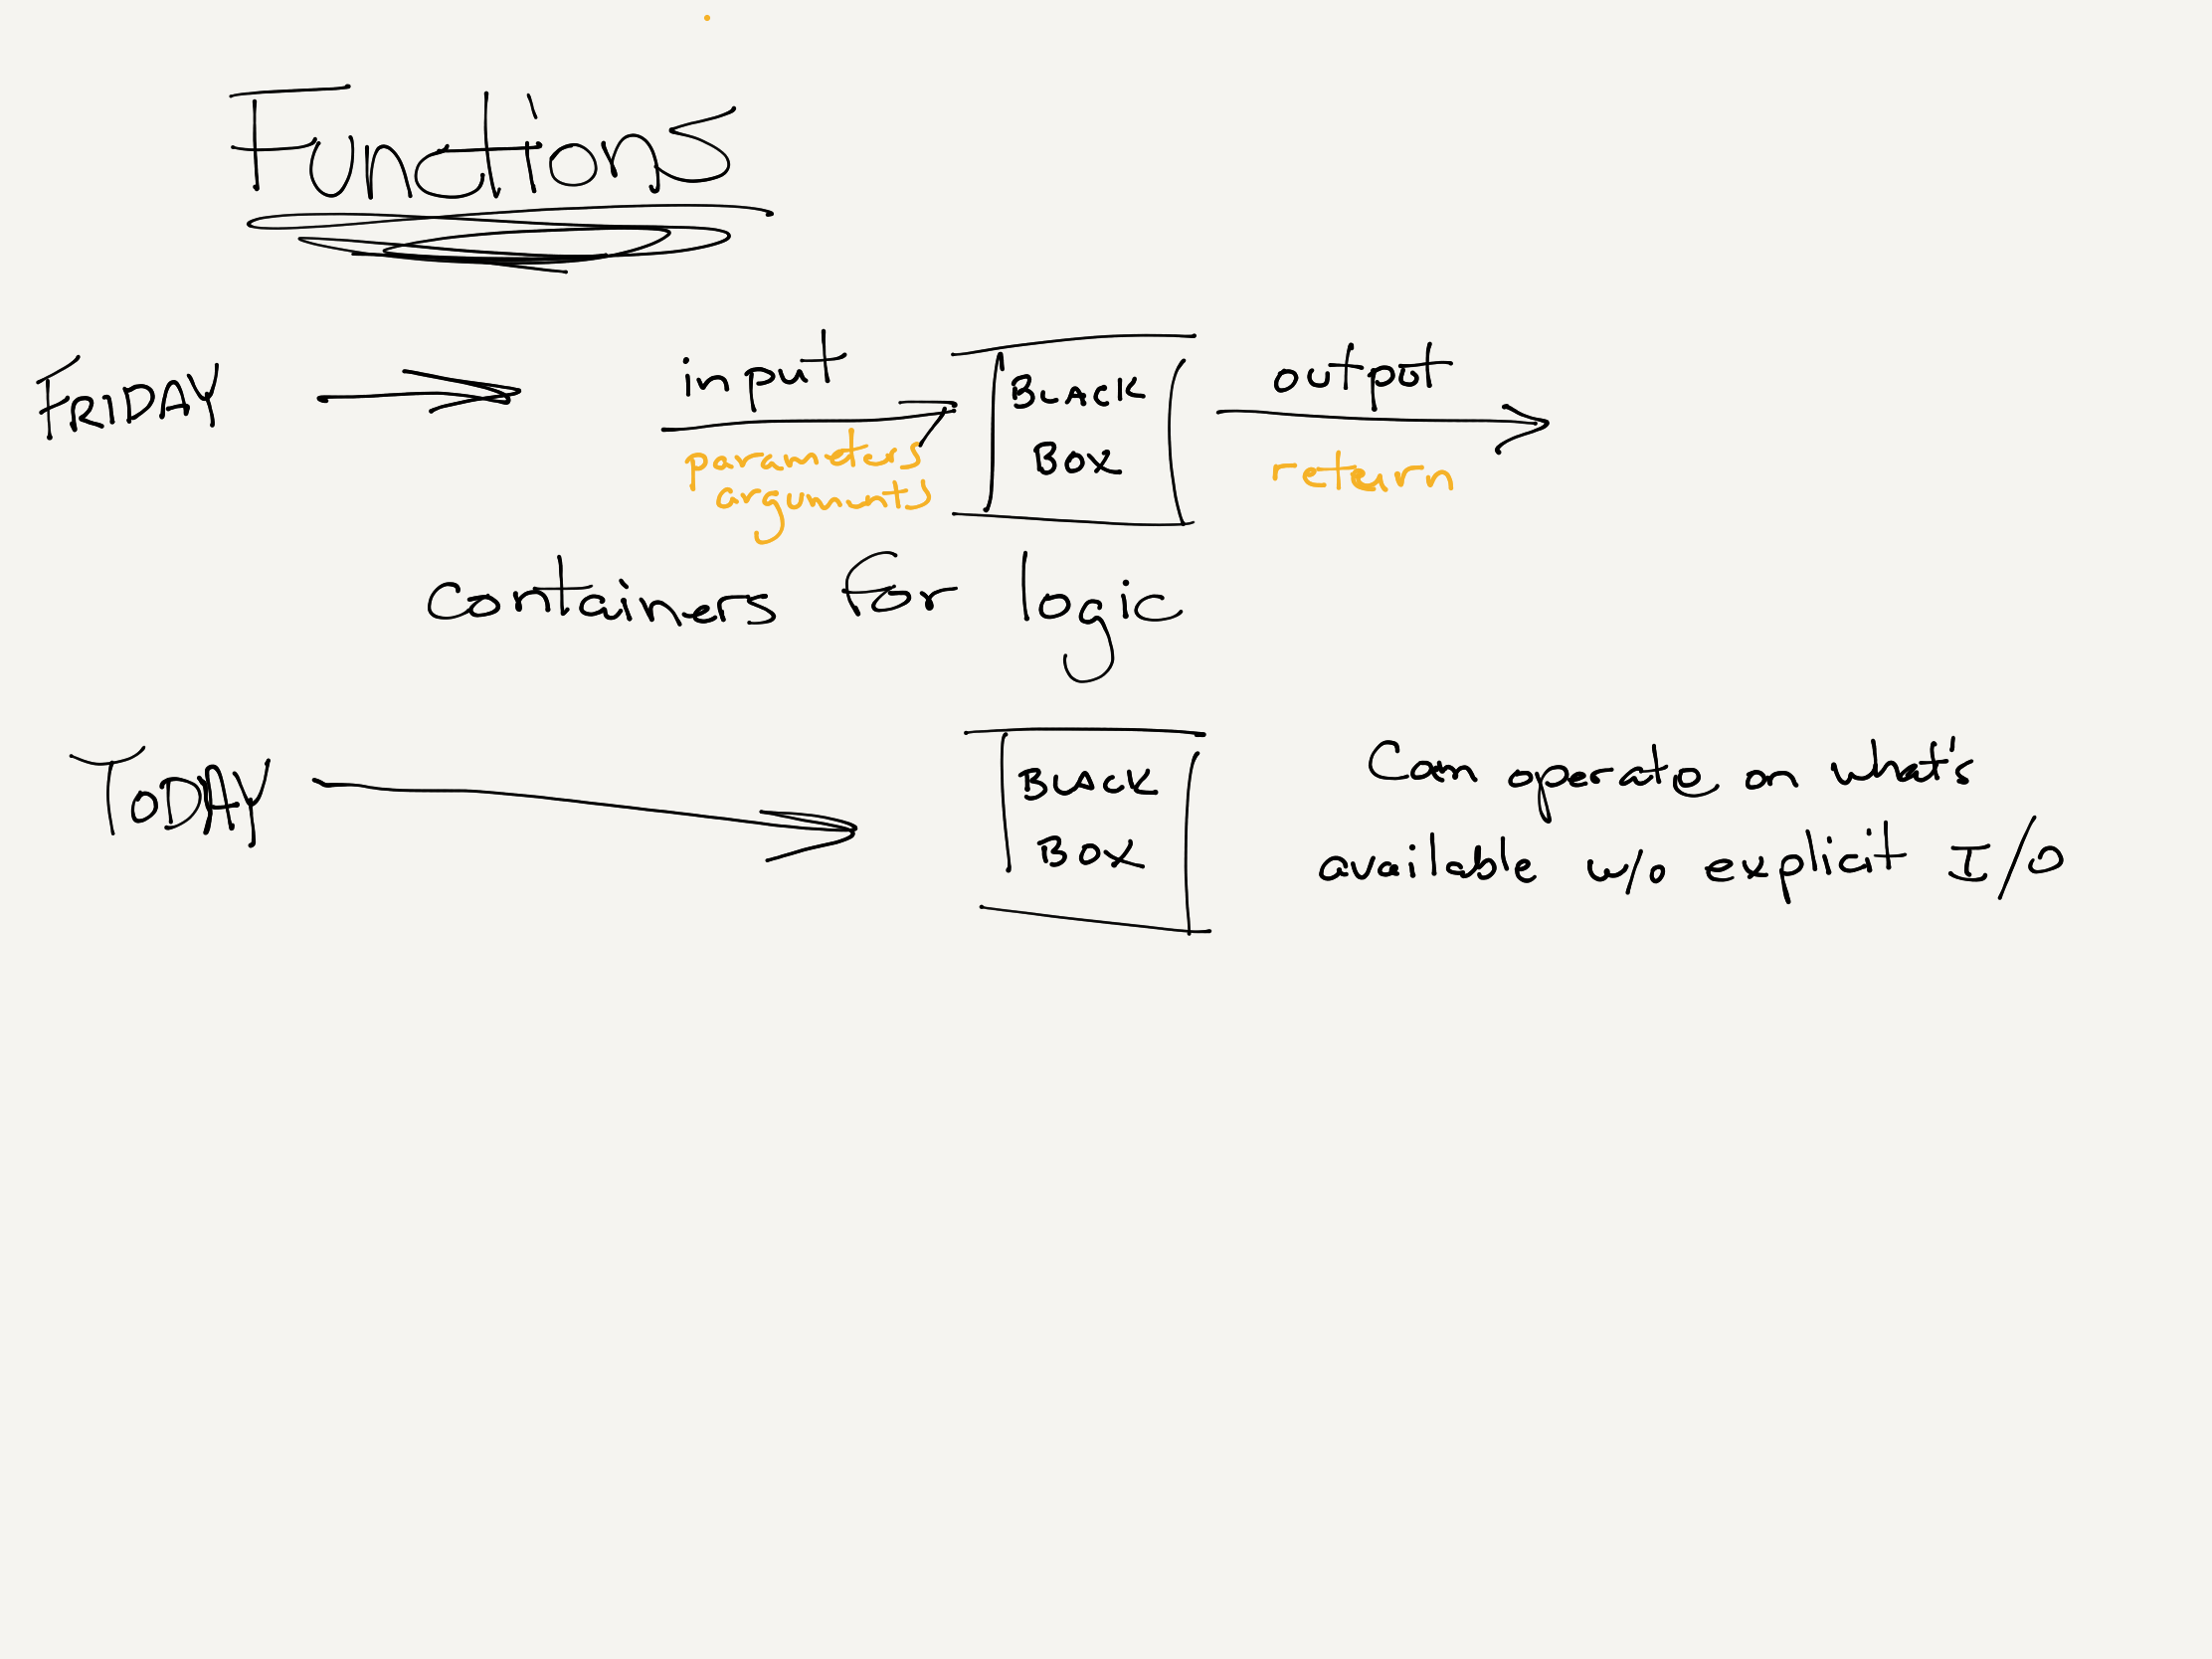 Functions
FRIDAY
input
parameters
arguments
BLACK
BOX
output
return
containers for logic
TODAY
BLACK
BOX
Can operate on what's
available w/o explicit I/O